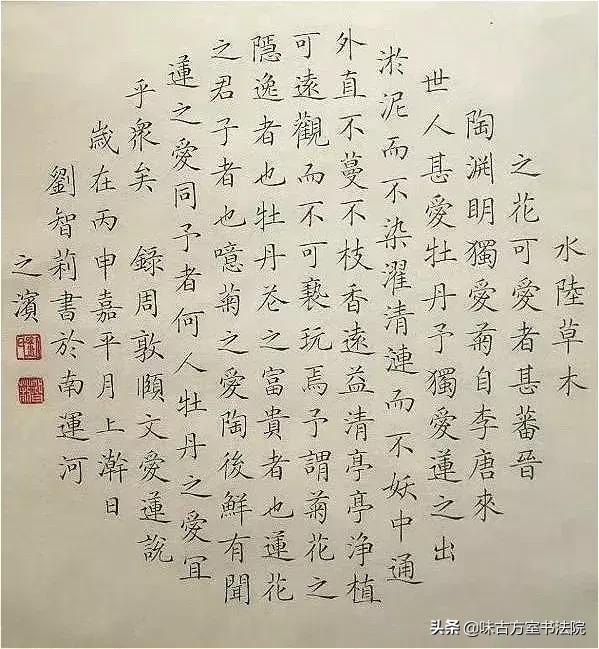 水陸草木
之花可愛者甚蕃晉
陶渕明獨愛菊自李唐來
世人甚愛牡丹予獨愛蓮之出
淤泥而不染濯清漣而不妖中通
外直不蔓不枝香遠益清亭亭淨植
可遠觀而不可褻玩焉予謂菊花之
隱逸者也牡丹花之富貴者也蓮花
之君子者也噫菊之愛陶後鮮有聞
蓮之愛同予者何人牡丹之愛冝
乎衆矣 錄周敦頤文愛蓮說
歲在丙申嘉平月上澣日
劉智莉書於南運河
之濱
头条 @味古方室书法院